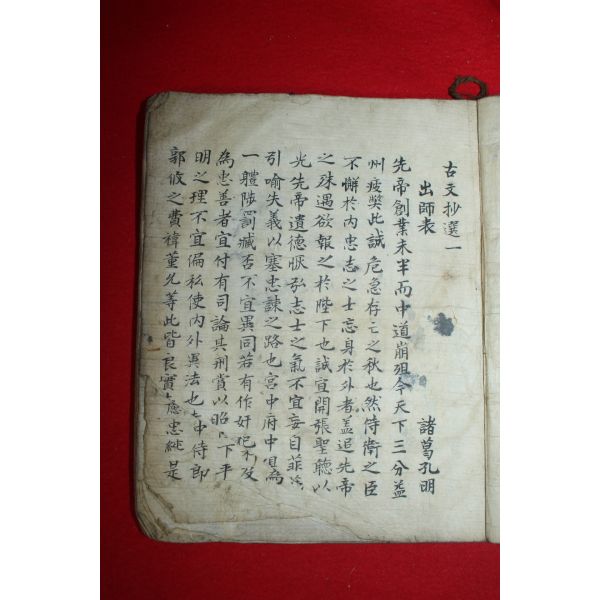 古文抄選一
出師表 諸葛孔明
先帝創業未半而中道崩殂今天下三分益
州疲獘此誠危急存亡之秋也然侍衛之臣
不懈於內忠志之士忘身於外者盖追先帝
之殊遇欲報之於陛下也誠宜開張聖聽以
光先帝遺德恢弘志士之氣不宜妄自菲薄
引喩失義以塞忠諫之路也宮中府中俱為
一體陟罰臧否不宜異同若有作奸犯科及
為忠善者宜付有司論其刑賞以昭陛下平
明之理不宜偏私使內外異法也侍中侍郎
郭攸之費禕董允等此皆良實志慮忠純是